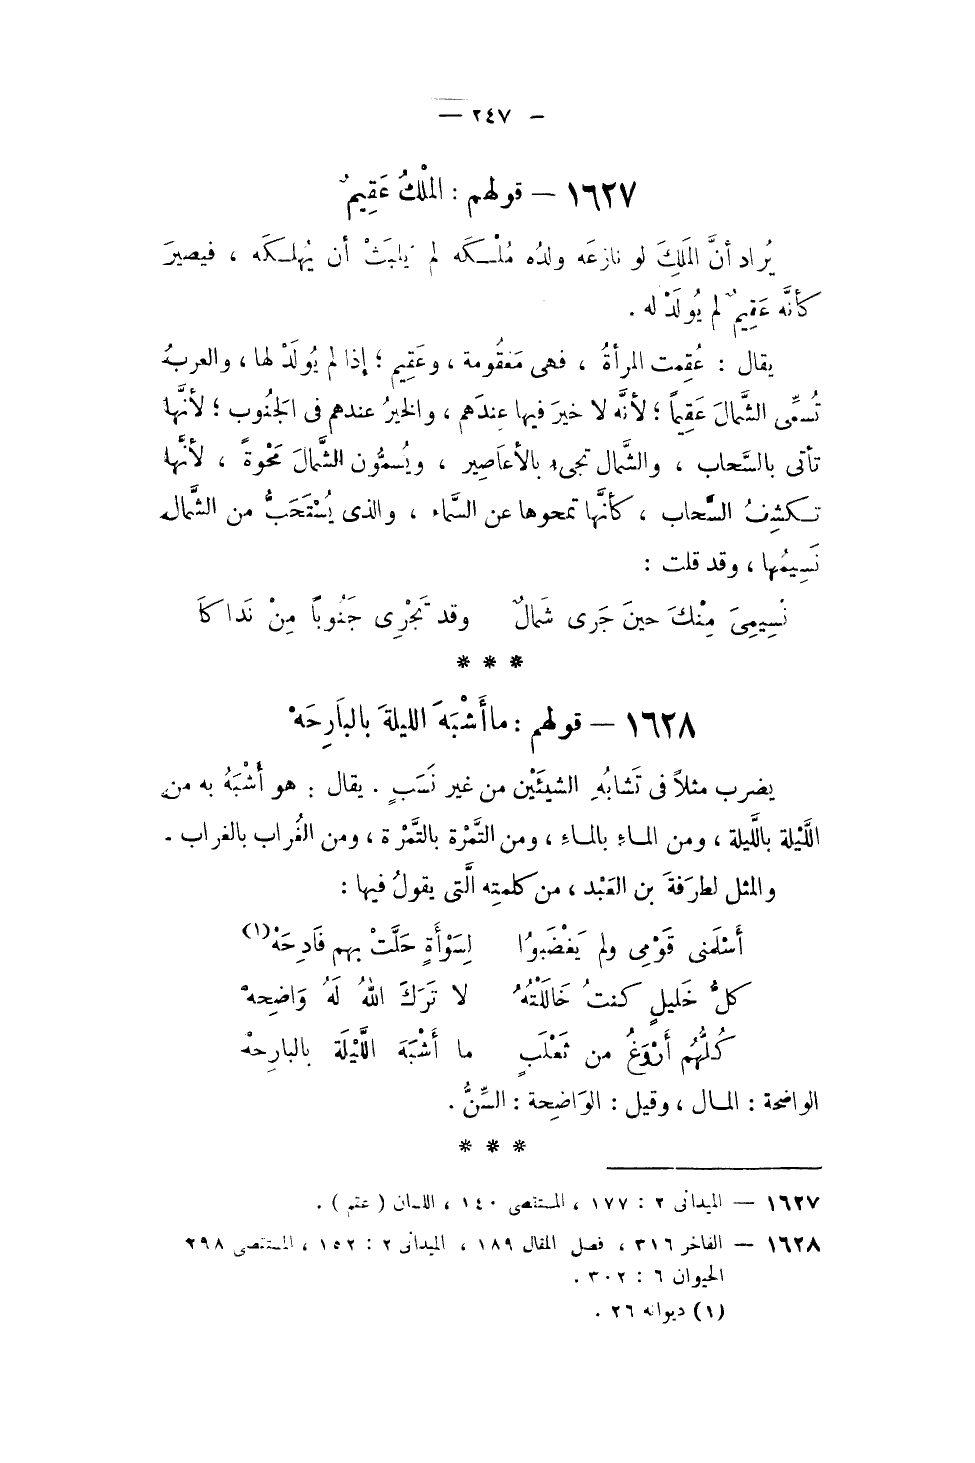 — ٢٤٧ —
١٦٢٧ — قولهم : المُلْكُ عَقِيمٌ
يُراد أنَّ المَلِكَ لو نازعَه ولدُه مُلْـكَه لم يَلبَثْ أن يُهلِـكَه ، فيصيرَ
كأنَّه عَقِيمٌ لم يُولَدْ له .
يقال : عُقِمت المرأةُ ، فهى مَعقُومة ، وعَقِيم ؛ إذا لم يُولَدْ لها ، والعربُ
تُسمِّى الشَّمالَ عَقِيماً ؛ لأنَّه لا خيرَ فيها عِندَهم ، والخيرُ عندهم فى الجَنُوب ؛ لأنَّها
تأتى بالسَّحاب ، والشَّمال تجىء بالأعاصِير ، ويُسمُّون الشَّمالَ مَحْوةً ، لأنَّها
تـكشِفُ السَّحاب ، كأنَّها تمحوها عن السَّماء ، والذى يُسْتَحَبُّ من الشَّمال
نَسِيمُها ، وقد قلت :
نَسِيمِىَ مِنْكَ حينَ جَرى شَمالٌ وقد تَجْرِى جَنُوبًا مِنْ نَداكاَ
* * *
١٦٢٨ — قولهم : ما أَشْبَهَ الليلةَ بالبَارِحَهْ
يضرب مثلاً فى تَشابُهِ الشيئَيْن من غير نَسَبٍ . يقال : هو أَشْبَهُ به من
اللَّيْلة باللَّيلة ، ومن المـاءِ بالمـاءِ ، ومن التَّمْرة بالتَّمْرة ، ومن الغُراب بالغراب .
والمثل لطرَفةَ بن العَبْد ، من كلمتِه الَّتى يقولُ فيها :
أَسْلَمَنى قَوْمِى ولم يَغْضَبُوا لِسَوْأَةٍ حَلَّتْ بهم فَادِحَهْ (١)
كلُّ خَليلٍ كنتُ خَالَلْتُهُ لا تَرَكَ اللهُ لَهُ وَاضحهْ
كُلُّهُم أَرْوَغُ من ثَعْلَبٍ ما أَشْبَهَ اللَّيْلَةَ بالبارِحهْ
الواضحة : المـال ، وقيل : الوَاضِحة : السِّنُّ .
* * *
١٦٢٧ — الميدانى ٢ : ١٧٧ ، المستقصى ١٤٠ ، اللسان ( عقم ) .
١٦٢٨ — الفاخر ٣١٦ ، فصل المقال ١٨٩ ، الميدانى ٢ : ١٥٢ ، المستقصى ٢٩٨
الحيوان ٦ : ٣٠٢ .
(١) ديوانه ٢٦ .